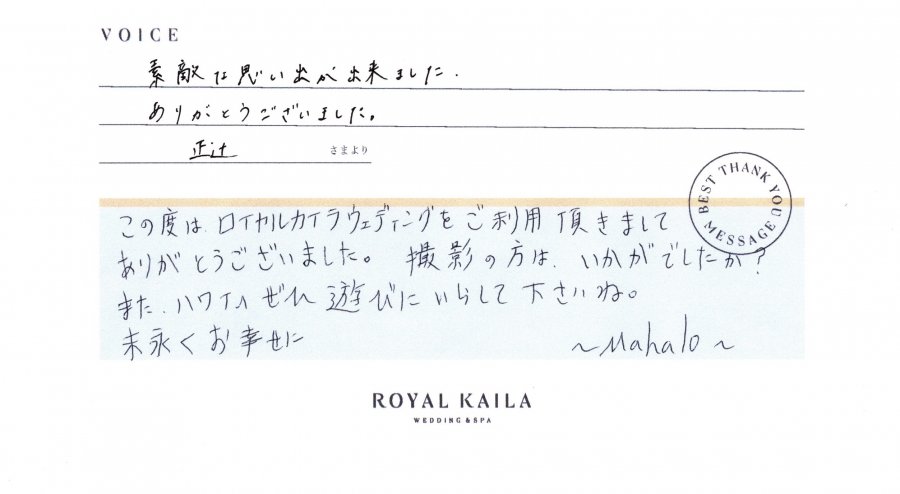 VOICE
素敵な思い出が出来ました.
ありがとうございました。
正辻 さまより
BEST THANK YOU MESSAGE
この度は、ロイヤルカイラウェディングをご利用頂きまして
ありがとうございました。 撮影の方は、いかがでしたか?
また、ハワイへぜひ遊びにいらして下さいね。
末永くお幸せに
~Mahalo~
ROYAL KAILA
WEDDING & SPA